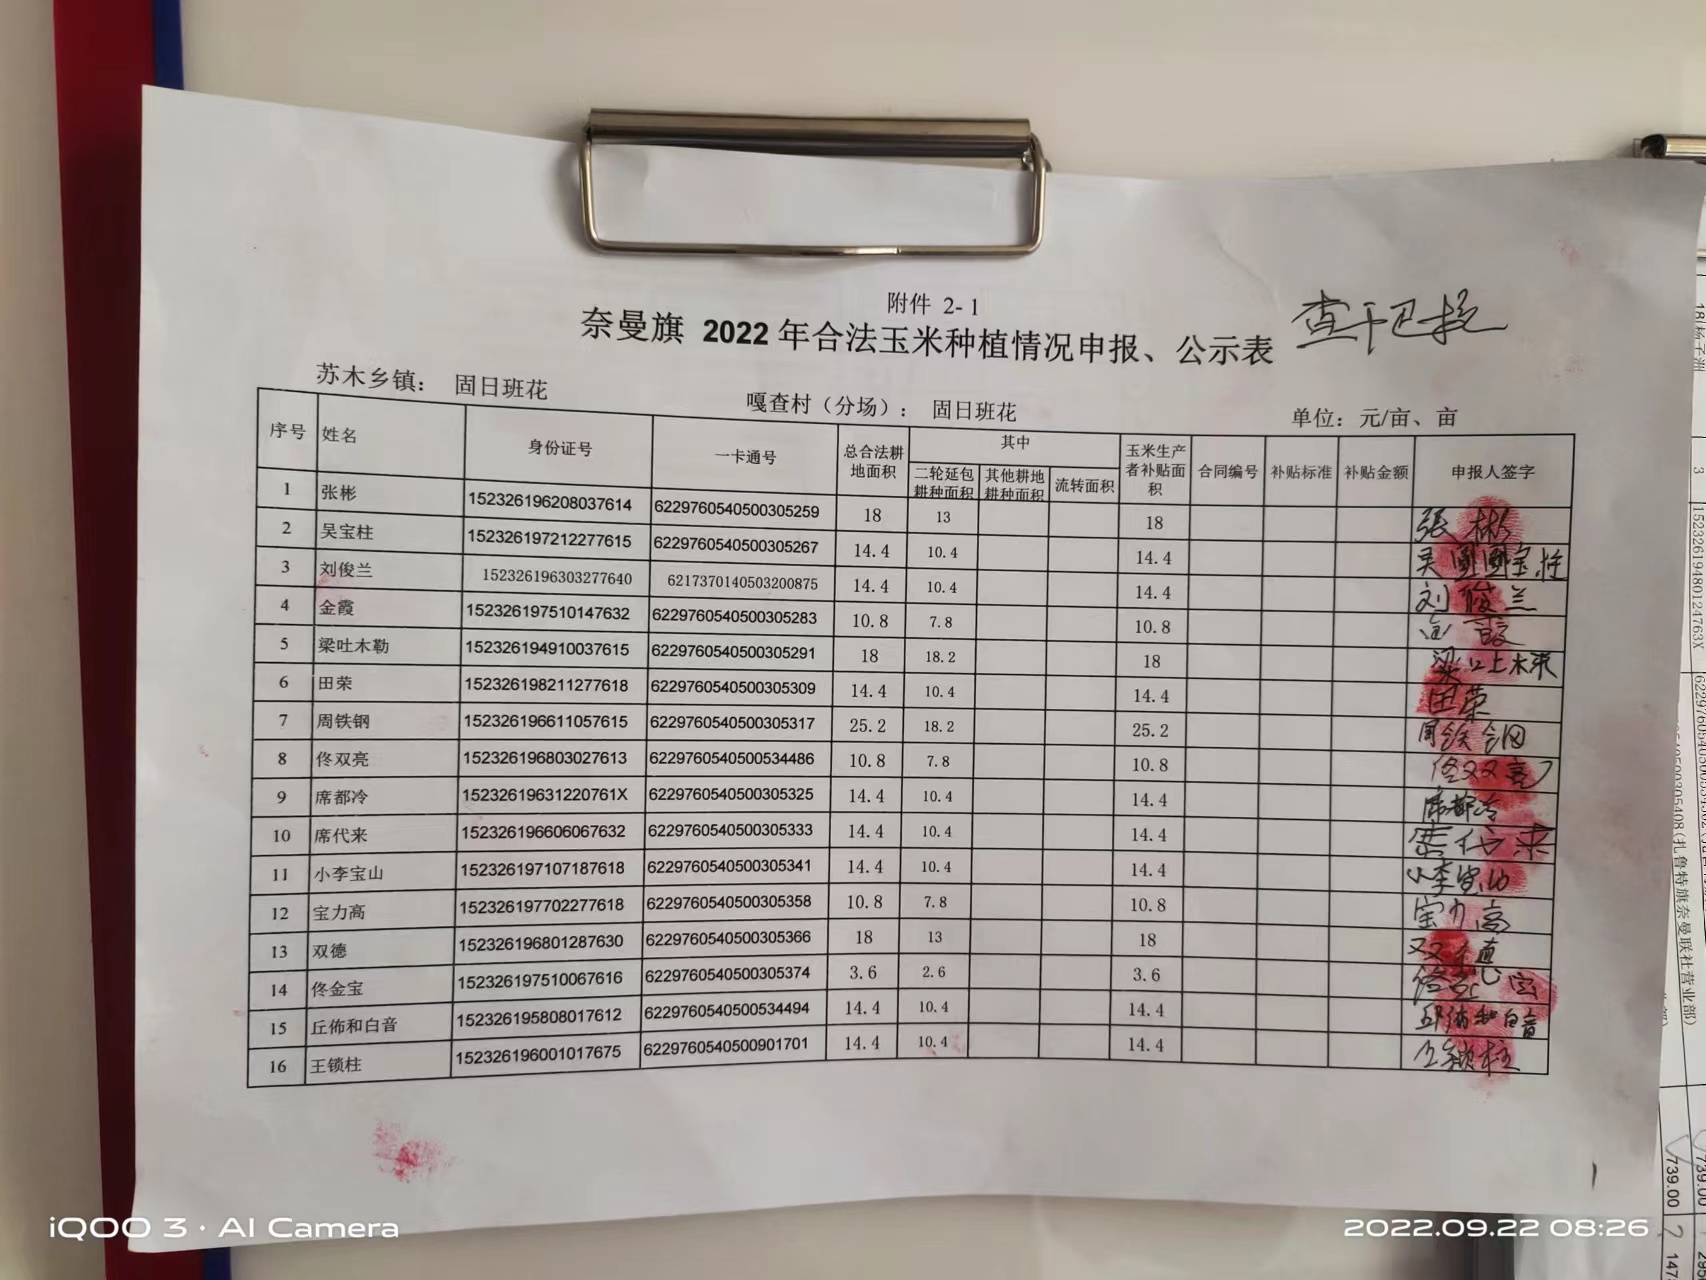 附件 2-1
奈曼旗 2022 年合法玉米种植情况申报、公示表
苏木乡镇： 固日班花 嘎查村（分场）： 固日班花 单位：元/亩、亩
序号 姓名 身份证号 一卡通号 总合法耕地面积 其中 二轮延包耕种面积 其他耕地耕种面积 流转面积 玉米生产者补贴面积 合同编号 补贴标准 补贴金额 申报人签字
1 张彬 152326196208037614 6229760540500305259 18 13 18 张彬
2 吴宝柱 152326197212277615 6229760540500305267 14.4 10.4 14.4 吴宝柱
3 刘俊兰 152326196303277640 6217370140503200875 14.4 10.4 14.4 刘俊兰
4 金霞 152326197510147632 6229760540500305283 10.8 7.8 10.8 金霞
5 梁吐木勒 152326194910037615 6229760540500305291 18 18.2 18
6 田荣 152326198211277618 6229760540500305309 14.4 10.4 14.4 田荣
7 周铁钢 152326196611057615 6229760540500305317 25.2 18.2 25.2 周铁钢
8 佟双亮 152326196803027613 6229760540500534486 10.8 7.8 10.8 佟双亮
9 席都冷 15232619631220761X 6229760540500305325 14.4 10.4 14.4 席都冷
10 席代来 152326196606067632 6229760540500305333 14.4 10.4 14.4 席代来
11 小李宝山 152326197107187618 6229760540500305341 14.4 10.4 14.4 小李宝山
12 宝力高 152326197702277618 6229760540500305358 10.8 7.8 10.8 宝力高
13 双德 152326196801287630 6229760540500305366 18 13 18 双德
14 佟金宝 152326197510067616 6229760540500305374 3.6 2.6 3.6
15 丘佈和白音 152326195808017612 6229760540500534494 14.4 10.4 14.4 丘佈和白音
16 王锁柱 152326196001017675 6229760540500901701 14.4 10.4 14.4 王锁柱
iQOO 3 · AI Camera
2022.09.22 08:26
152326194801247663X
(扎鲁特旗奈曼联社营业部)
739.00